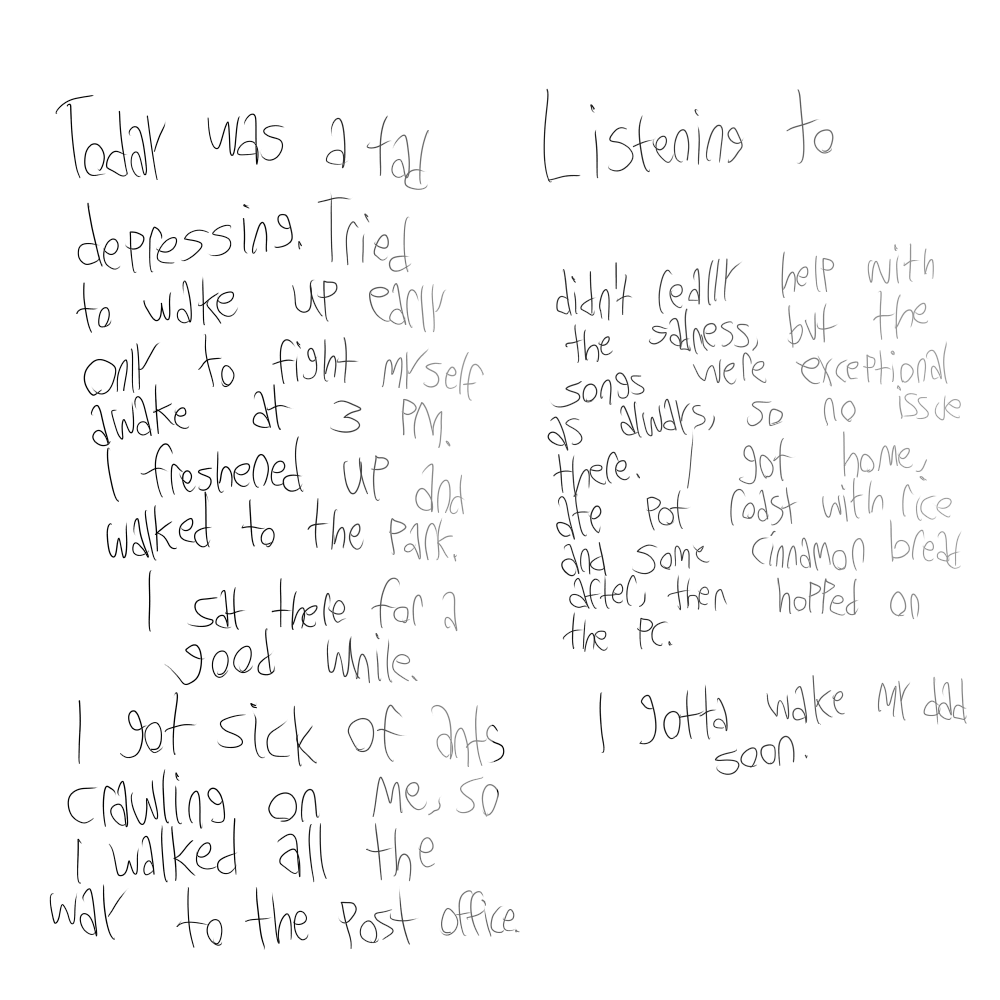 Today was a tad
depressing. Tried
to wake up early
only to fight myself
awake at 3 PM.
I freshened up and
walked to the park.
I sat there for a
good while.
I got sick of ants
crawling on me, so
I walked all the
way to the post office.
Listening to
didn't really help with
the sadness, but the
songs were exceptional
as always, so no issue
there. I got home,
ate pot roast with rice
and some cinnamon bread
after, then hopped on
the PC.
I gotta wake my dad
soon.